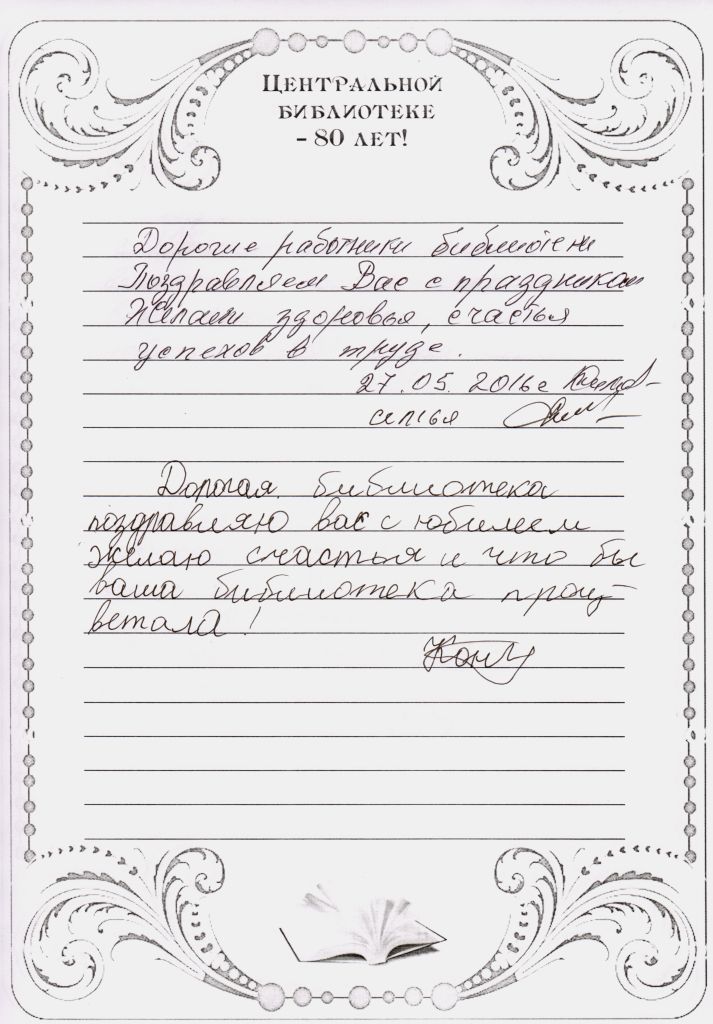 Центральной
библиотеке
- 80 лет!
Дорогие работники библиотеки
Поздравляем Вас с праздником
Желаем здоровья, счастья
успехов в труде.
27.05.2016г
семья
Дорогая библиотека
поздравляю вас с юбилеем
желаю счастья и что бы
ваша библиотека проц-
ветала!